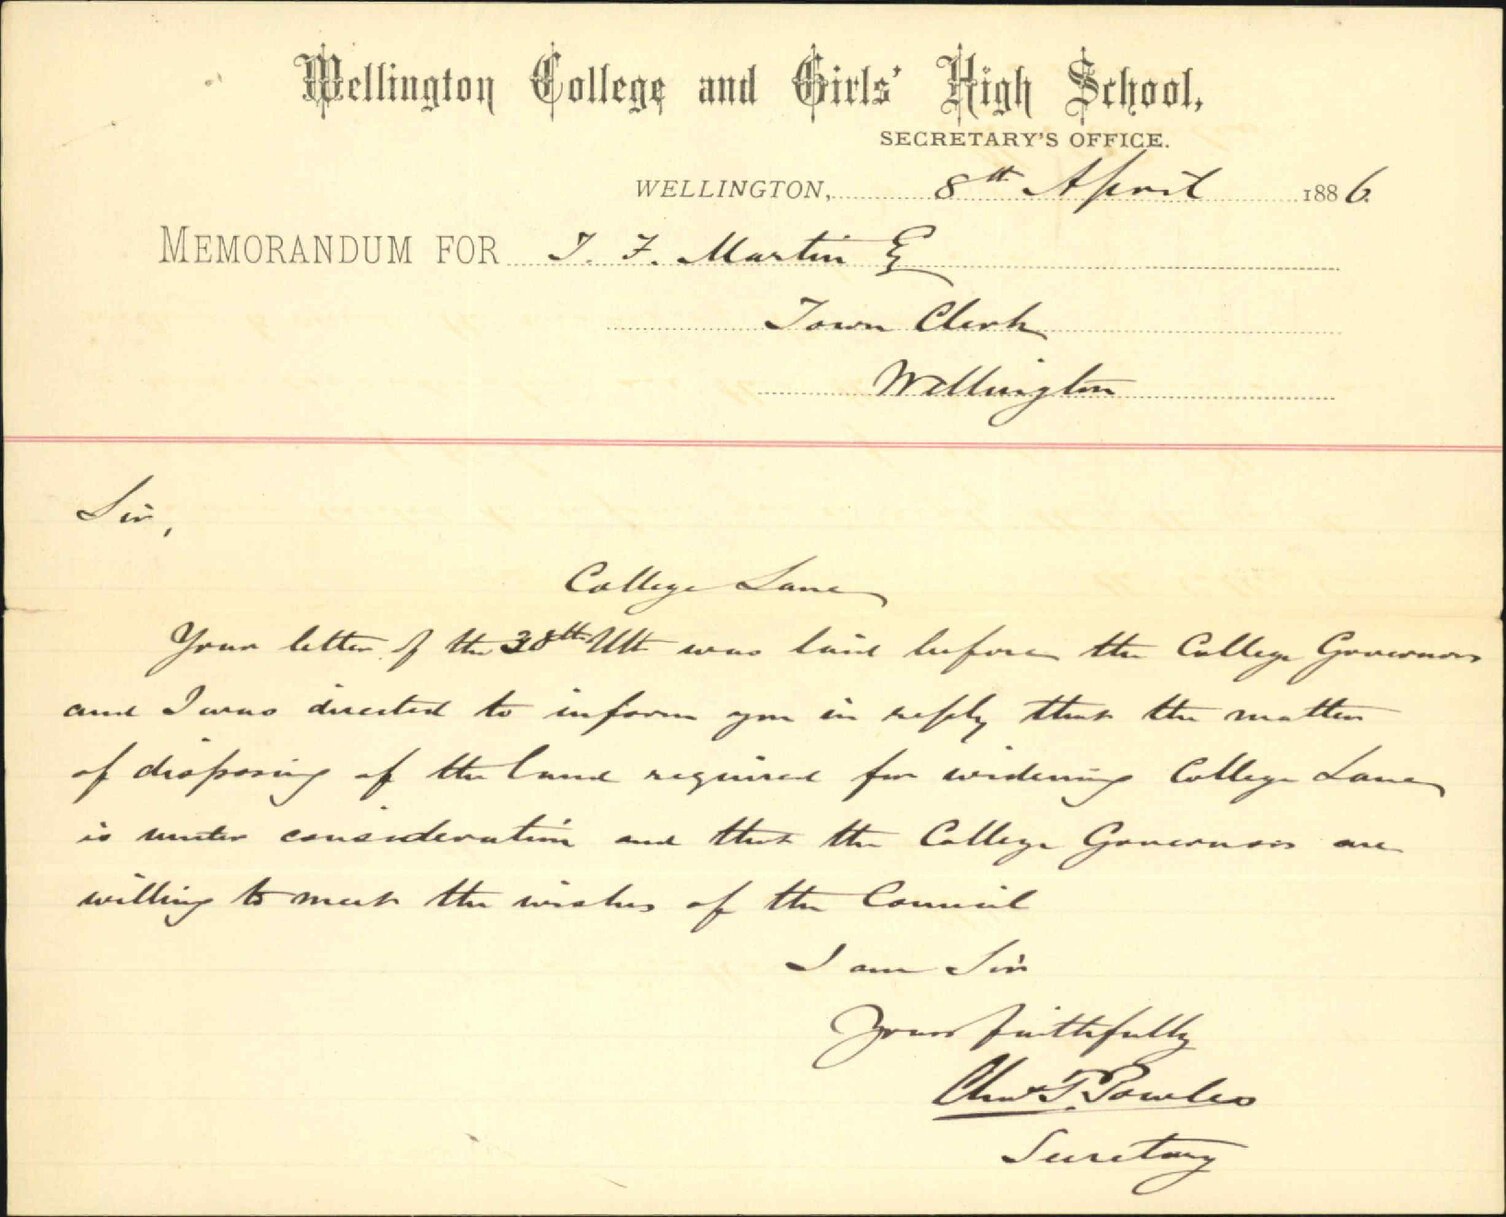 Wellington College and Girls' High School,
SECRETARY'S OFFICE.
WELLINGTON, 8th April 1886.
MEMORANDUM FOR T. F. Martin Eq
Town Clerk
Wellington
Sir,
College Lane
Your letter of the 30th Ult was laid before the College Governors
and I was directed to inform you in reply that the matter
of disposing of the land required for widening College Lane
is under consideration and that the College Governors are
willing to meet the wishes of the Council
I am Sir
Yours faithfully
Chas T. Powles
Secretary